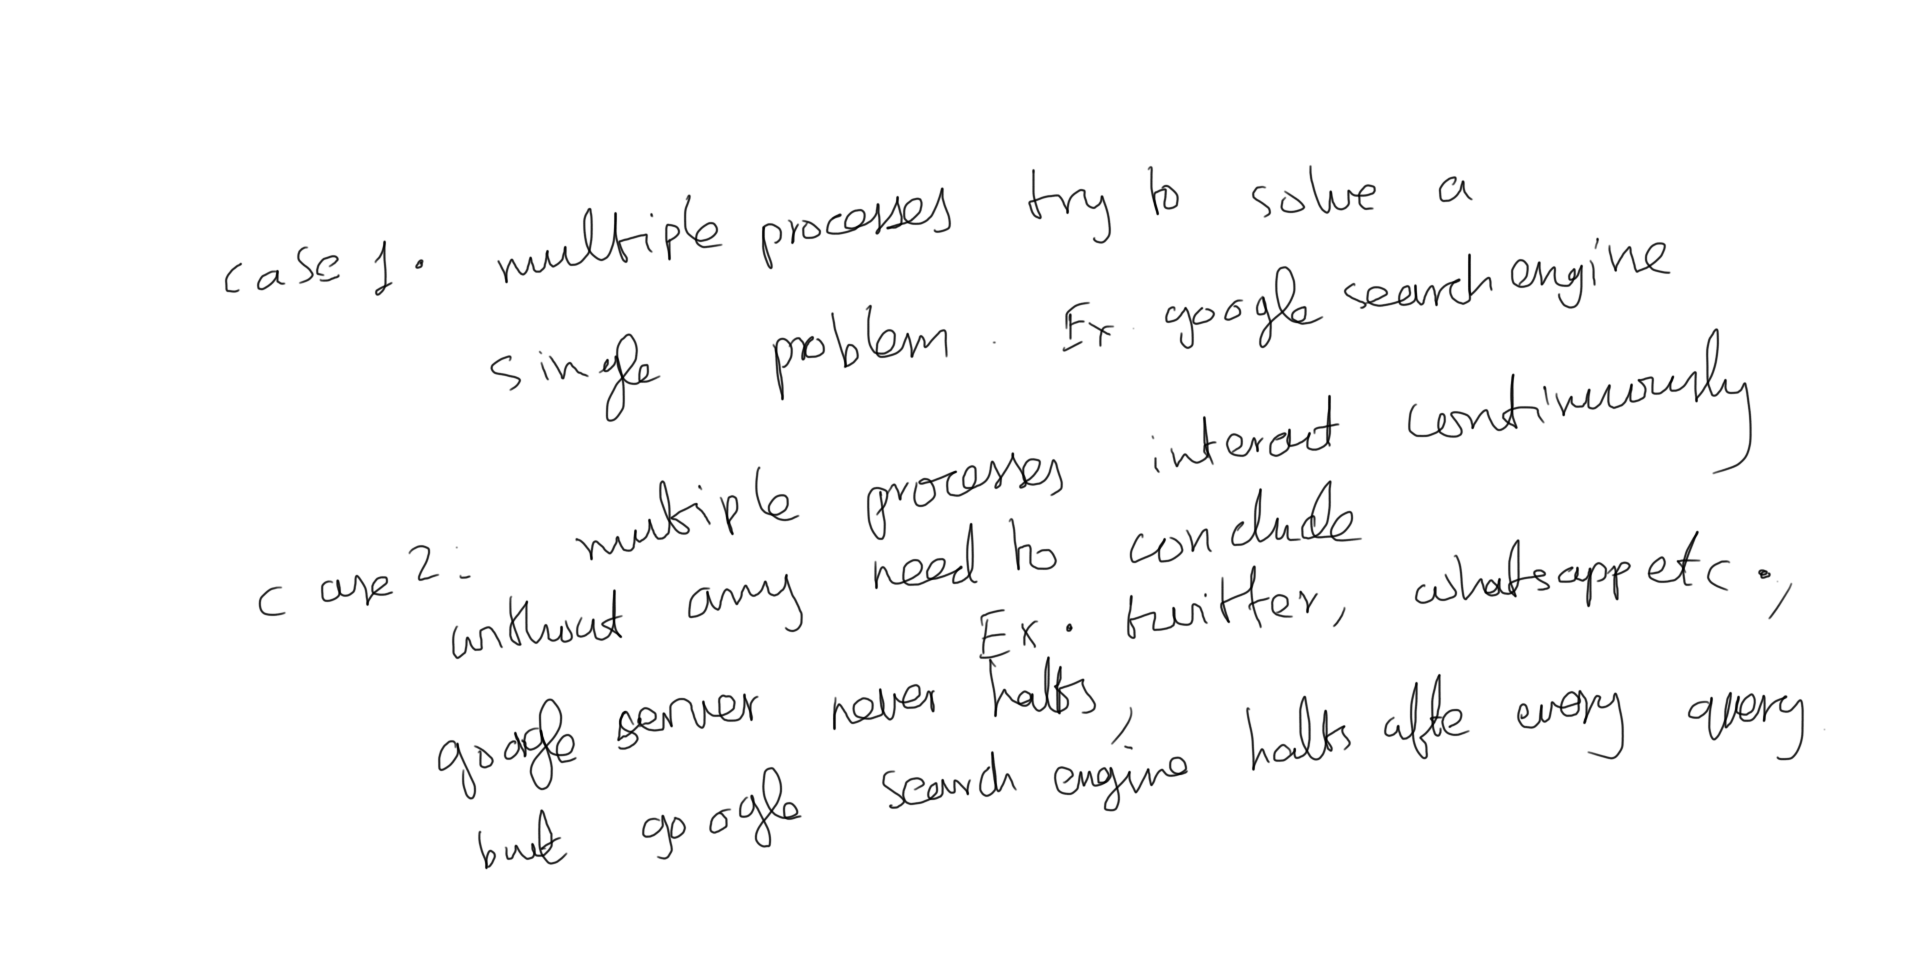 case 1. multiple processes try to solve a
single problem. Ex. google search engine
case 2: multiple processes interact continuously
without any need to conclude
Ex. twitter, whatsapp etc.,
google server never halts,
but google search engine halts afte every query